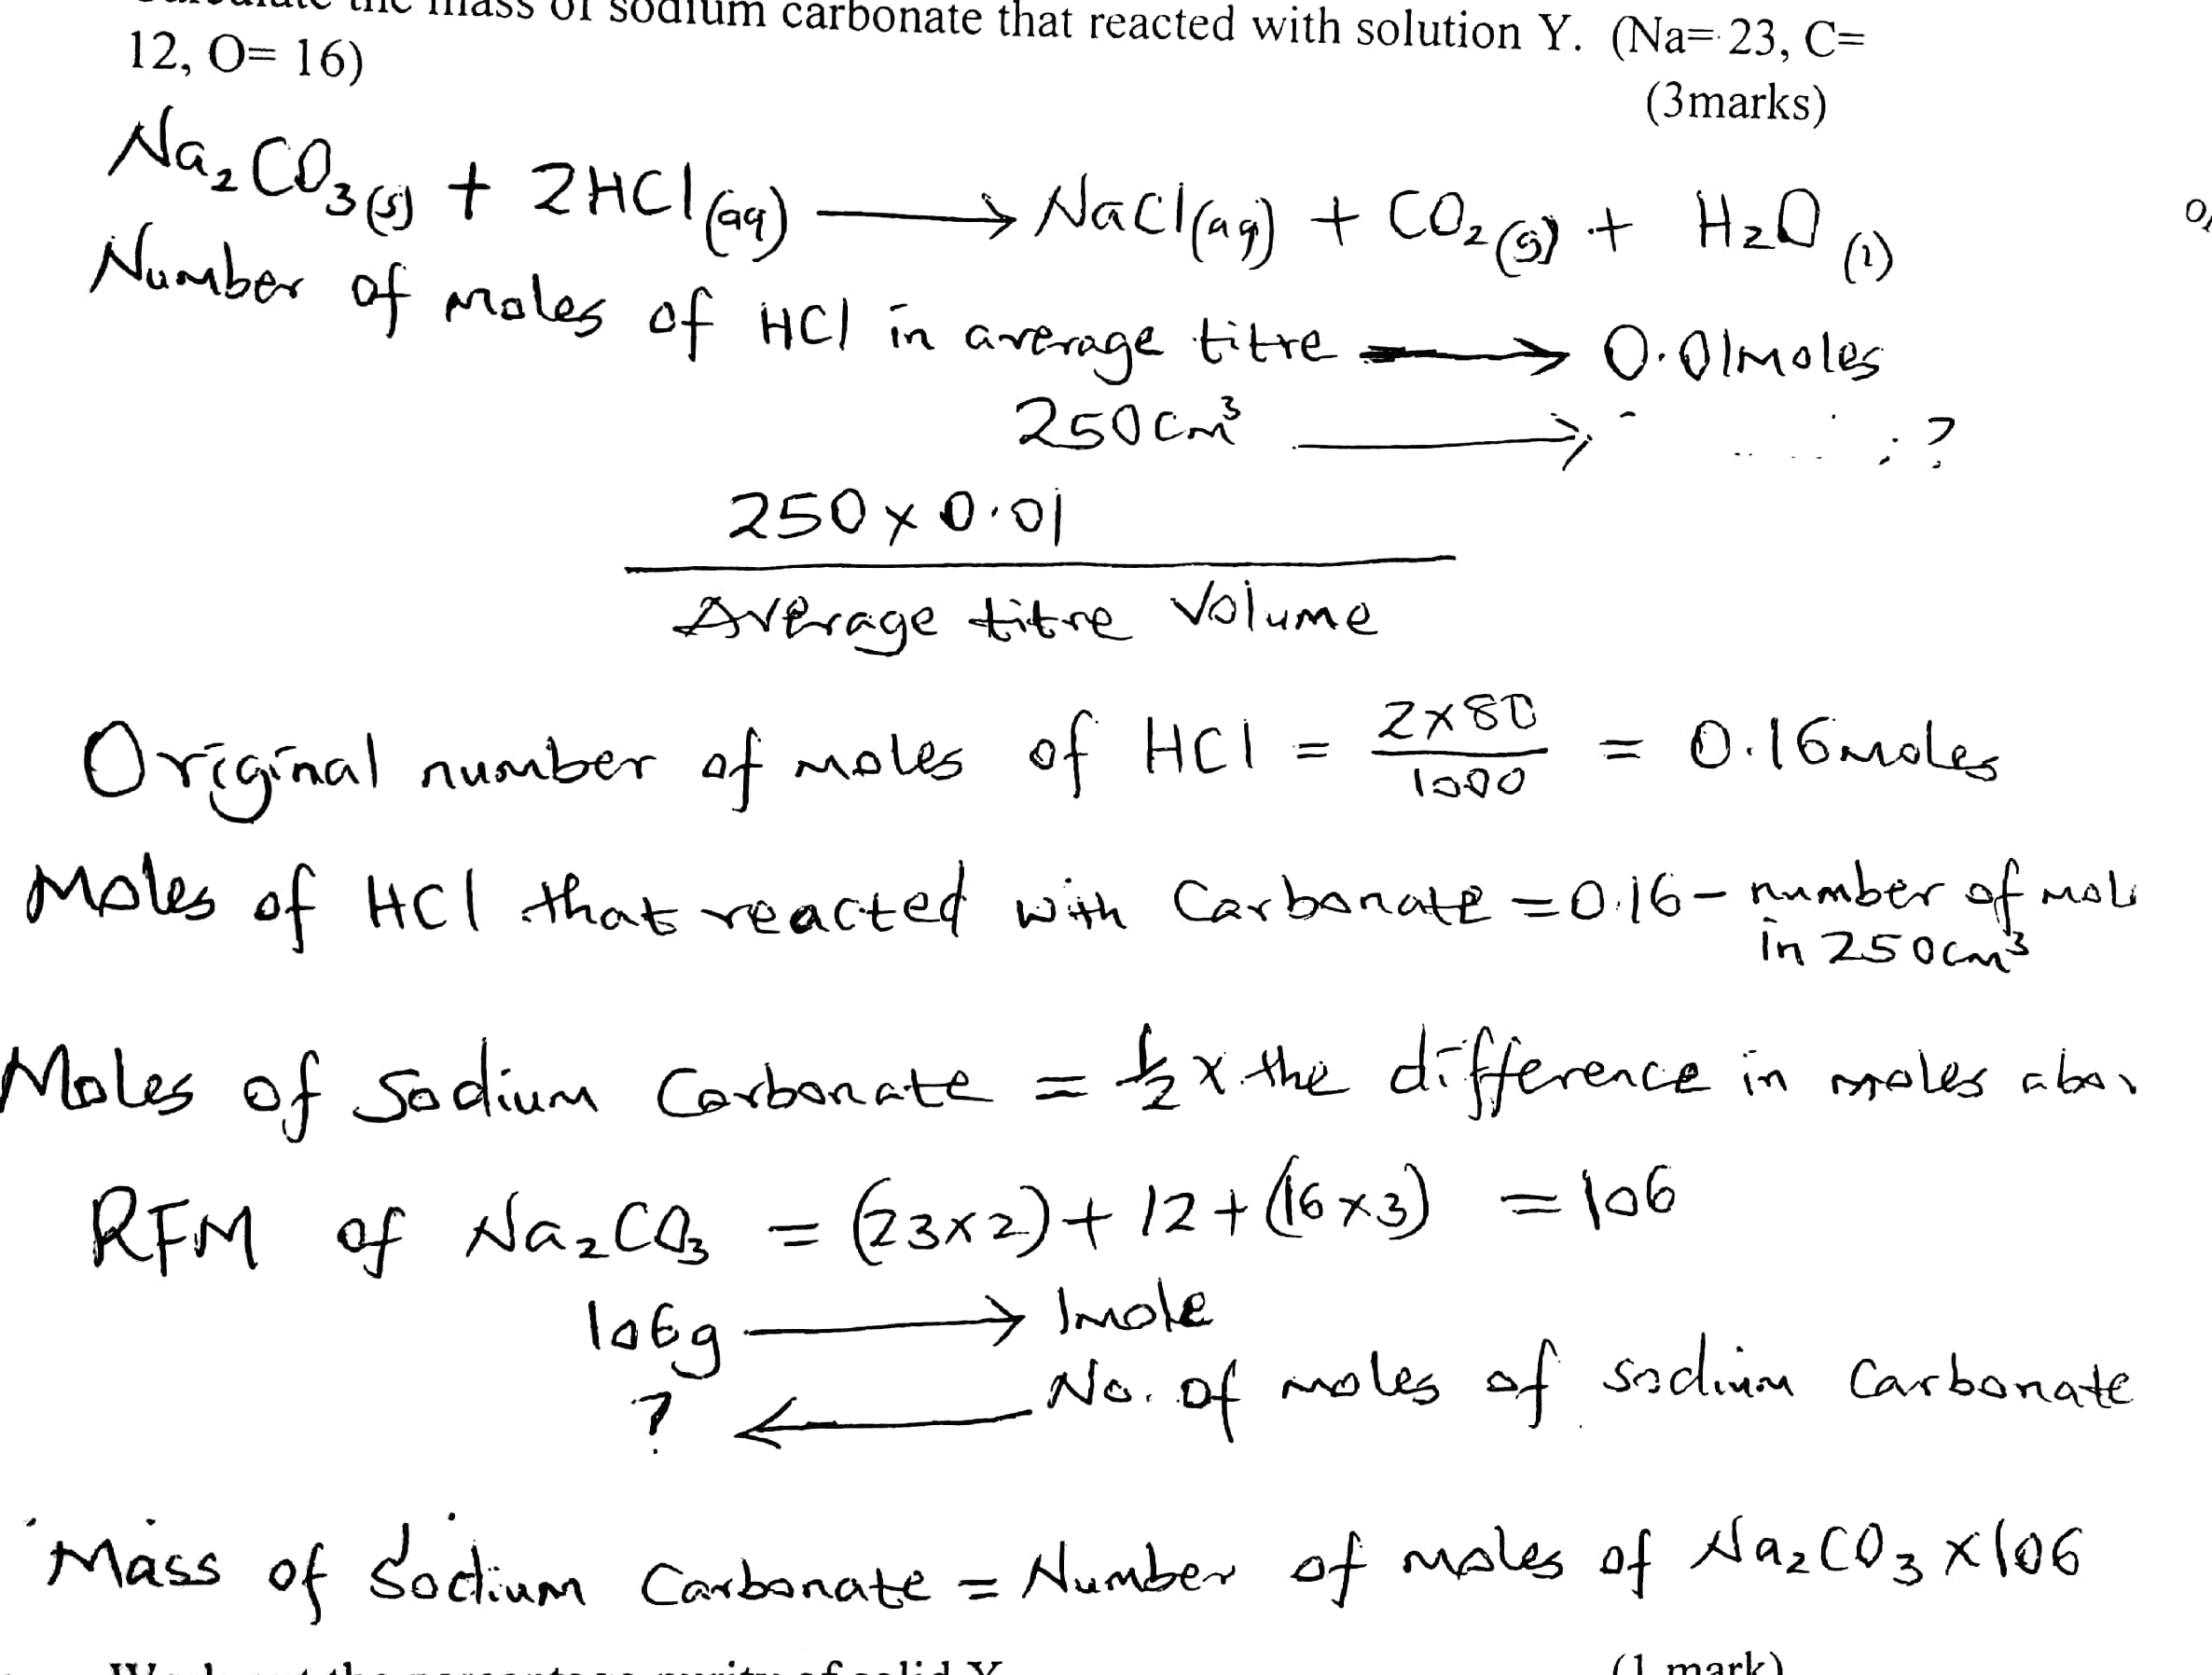 the mass of sodium carbonate that reacted with solution Y. (Na= 23, C=
12, O= 16)
(3marks)
Na₂CO₃(s) + 2HCl(aq) ⟶ NaCl(aq) + CO₂(g) + H₂O(l)
Number of moles of HCl in average titre ⟶ 0.01moles
250cm³ ⟶ ?
250 x 0.01
Average titre volume
Original number of moles of HCl = 2x80/1000 = 0.16moles
Moles of HCl that reacted with Carbonate = 0.16 - number of mol
in 250cm³
Moles of Sodium Carbonate = ½ x the difference in moles abo
RFM of Na₂CO₃ = (23x2) + 12 + (16x3) = 106
106g ⟶ 1mole
? ⟵ No. of moles of sodium Carbonate
Mass of Sodium Carbonate = Number of moles of Na₂CO₃ x 106
(1 mark)